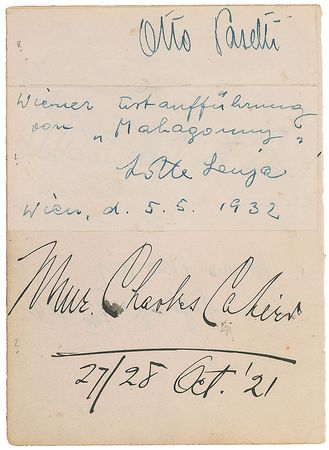 Otto Pasetti
Wiener Erstaufführung
von „Mahagonny"
Lotte Lenja
Wien, d. 5.5. 1932
Mme. Charles Cahier
27/28 Oct. '21